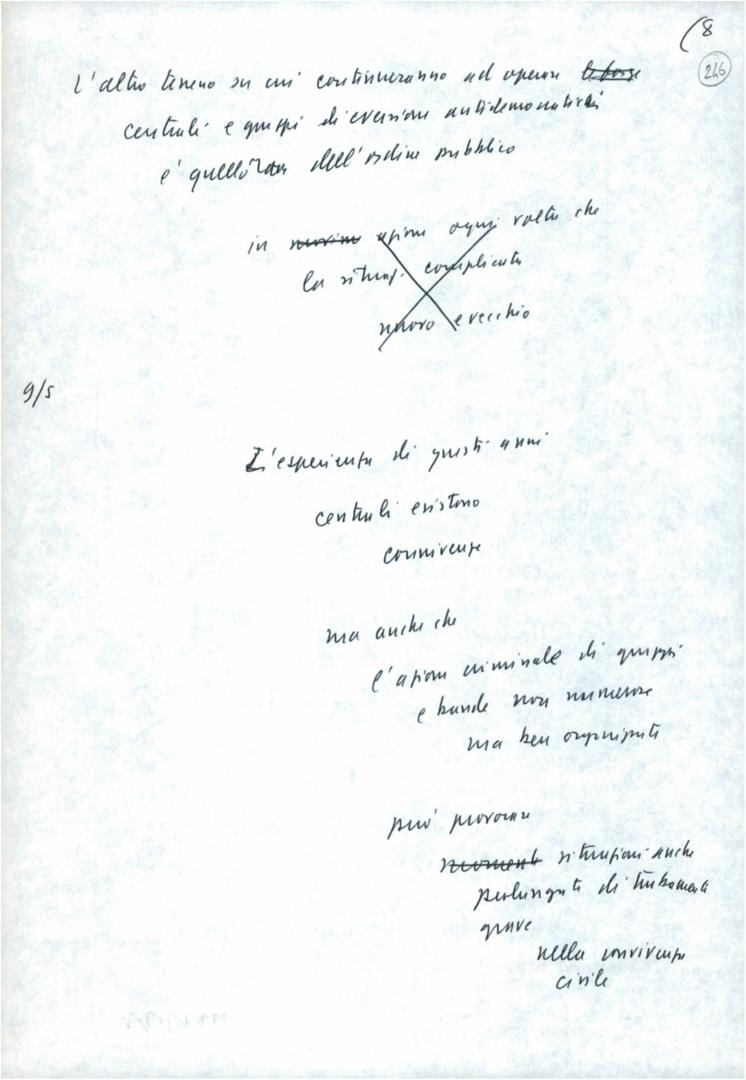 (8
246
L'altro terreno su cui continueranno ad operare le forze
centrali e gruppi di eversione antidemocratici
e' quello dell'ordine pubblico
in azione ogni volta che
la situaz. complicata
nuovo e vecchio
9/5
L'esperienza di questi anni
centrali esistono
connivenze
ma anche che
l'azione criminale di gruppi
e bande non numerose
ma ben organizzate
puo' provocare
momenti situazioni anche
prolungate di turbamenti
grave
nella convivenza
civile